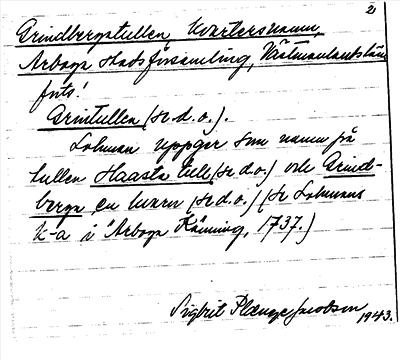 2
Grindbergstullen, kvartersnamn,
Arboga stadsförsamling, Västmanlands län
forts.!
Grintullen (se d.o.).
Lohman uppger som namn på
tullen Haasta tull (se d.o.) och Grind-
berga, en kvarn (se d.o.) (se Lohmans
k-a i Arboga Känning, 1737.)
Sigbrit Plænge Jacobson
1943.